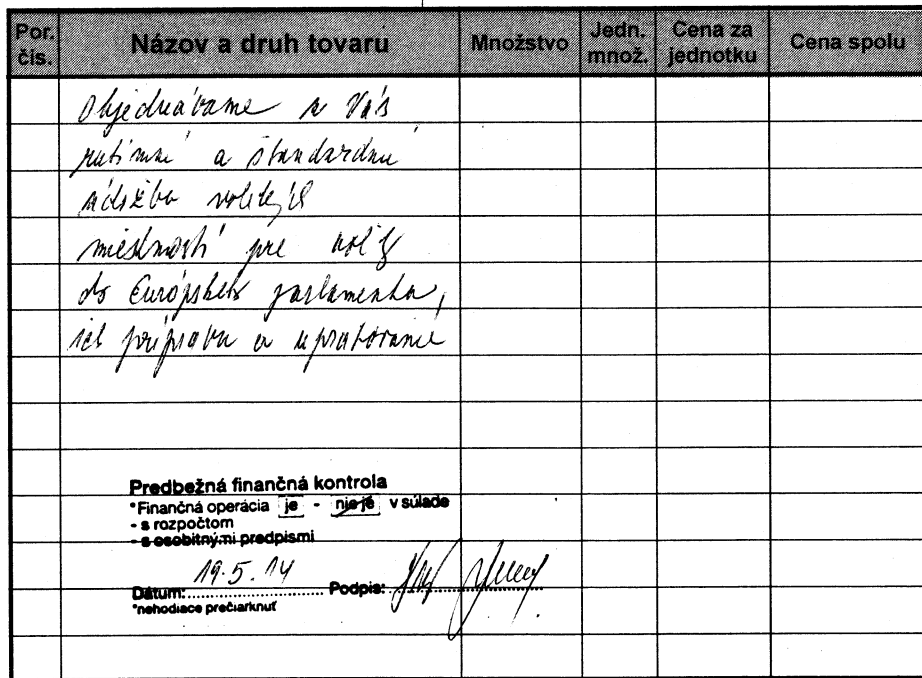 Por. čís. Názov a druh tovaru Množstvo Jedn. množ. Cena za jednotku Cena spolu
Objednávame u Vás
rutinnú a štandardnú
údržbu volebných
miestností pre voľby
do Európskeho parlamentu,
ich príprava a upratovanie
Predbežná finančná kontrola
*Finančná operácia je - nie je v súlade
- s rozpočtom
- s osobitnými predpismi
Dátum: 19.5.14 Podpis:
*nehodiace prečiarknuť